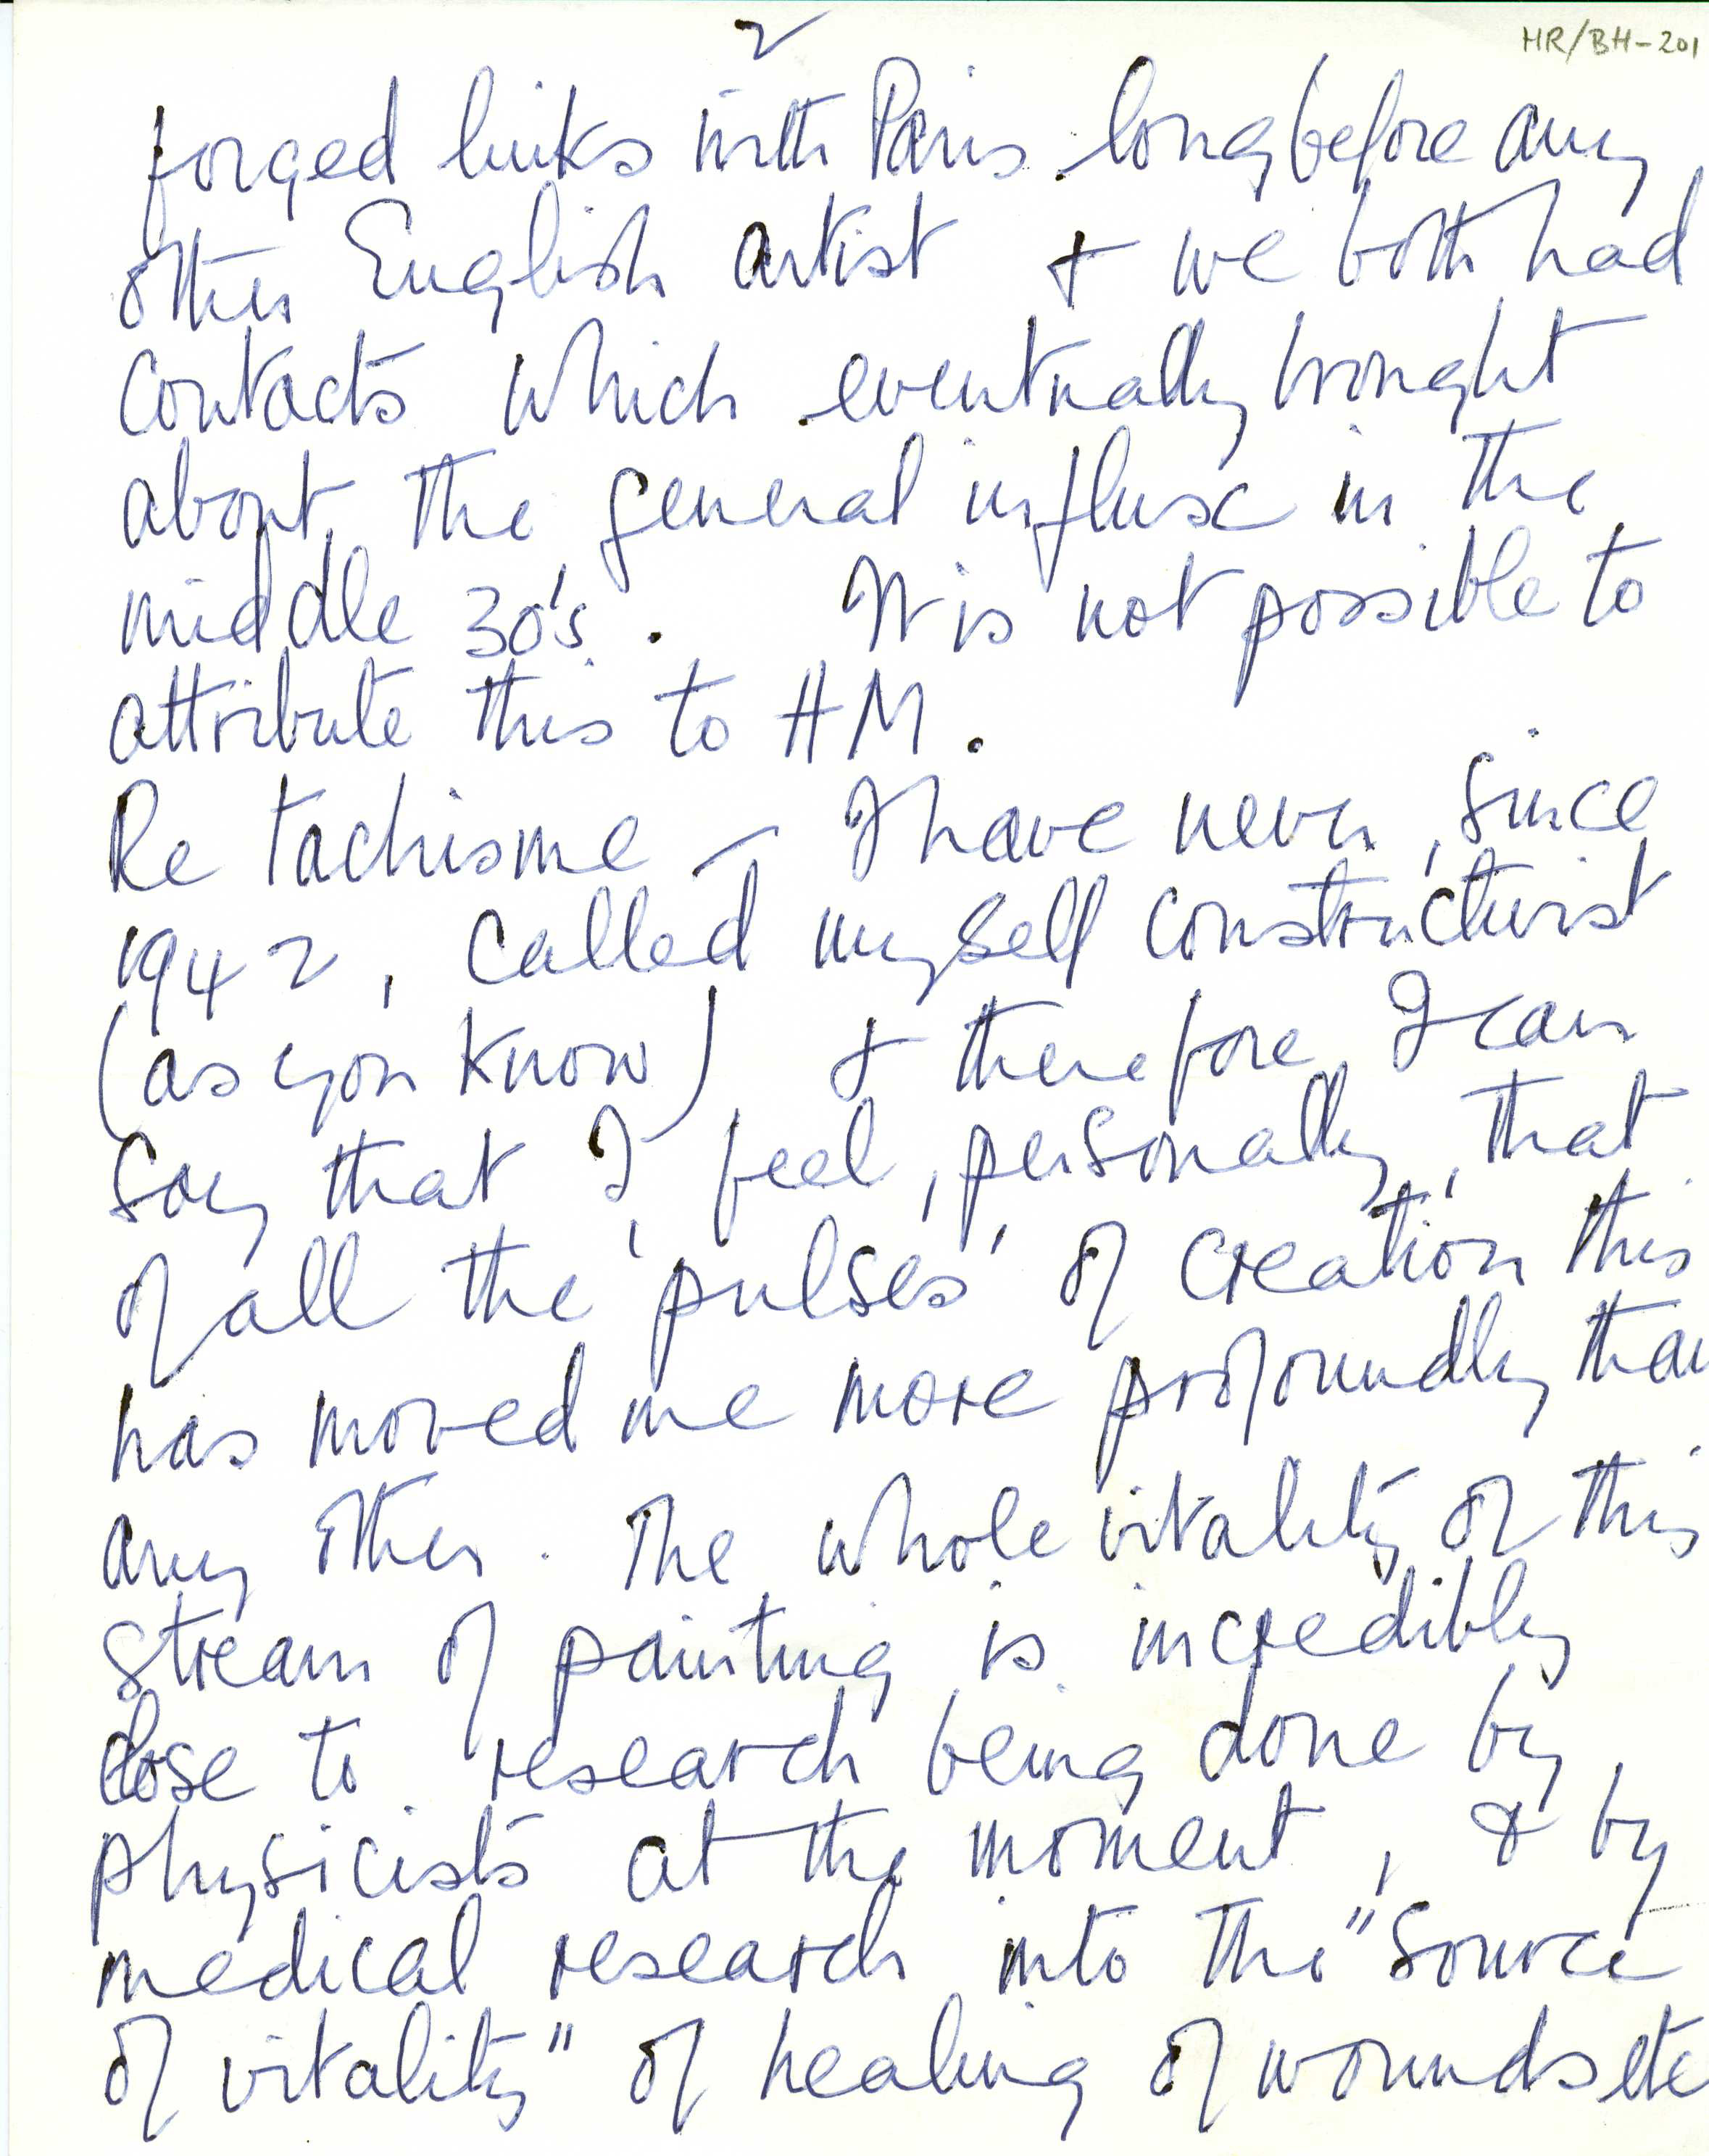 2
HR/BH-201
forged links with Paris long before any
other English artist & we both had
contacts which eventually brought
about the general influx in the
middle 30's. It is not possible to
attribute this to HM.
Re tachisme – I have never, since
1942, called myself constructivist
(as you know) & therefore I can
say that I feel, personally, that
of all the 'pulses' of creation this
has moved me more profoundly than
any other. The whole vitality of this
stream of painting is incredibly
close to research being done by
physicists at the moment, & by
medical research into the "source
of vitality" of healing of wounds etc